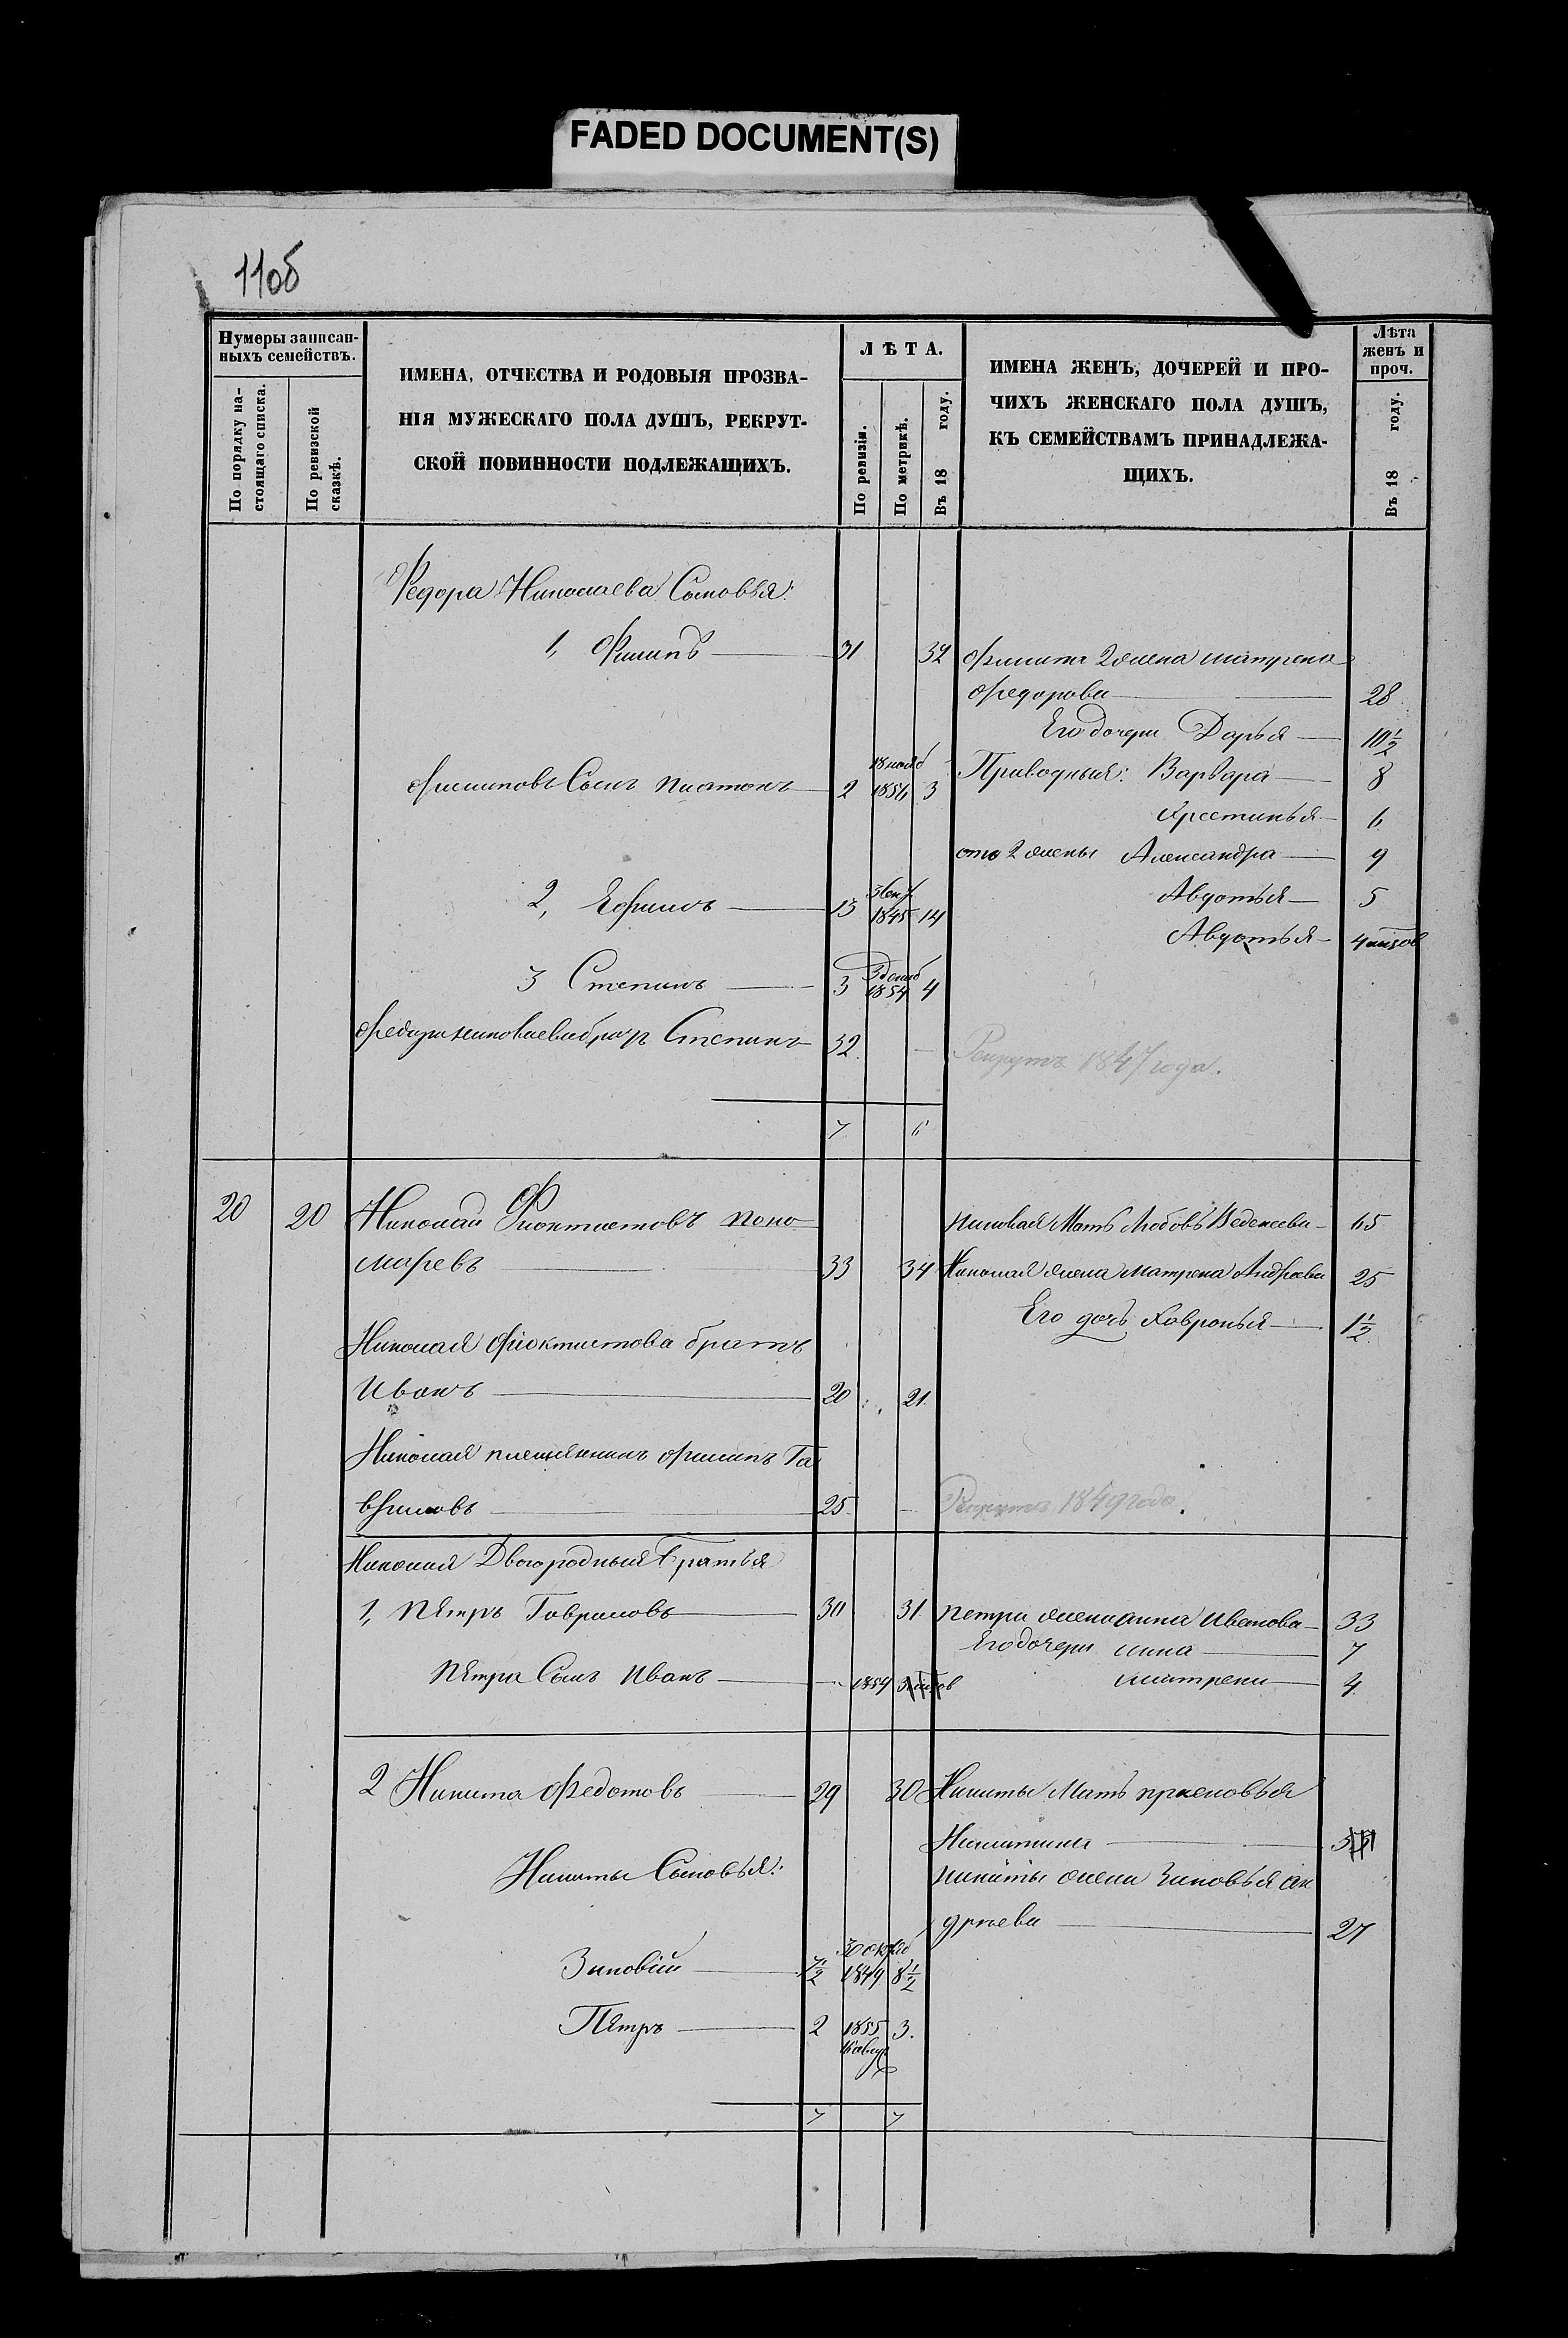 FADED DOCUMENT(S)
110б
Нумеры записан-
ныхъ семействъ.
По порядку на-
стоящаго списка.
По ревизской
сказкѣ.
ИМЕНА, ОТЧЕСТВА И РОДОВЫЯ ПРОЗВА-
НІЯ МУЖЕСКАГО ПОЛА ДУШЪ, РЕКРУТ-
СКОЙ ПОВИННОСТИ ПОДЛЕЖАЩИХЪ.
ЛѢТА.
По ревизіи.
По метрикѣ.
Въ 18 году.
ИМЕНА ЖЕНЪ, ДОЧЕРЕЙ И ПРО-
ЧИХЪ ЖЕНСКАГО ПОЛА ДУШЪ,
КЪ СЕМЕЙСТВАМЪ ПРИНАДЛЕЖА-
ЩИХЪ.
Лѣта
женъ и
проч.
Въ 18 году.
Федора Николаева Сыновья:
1, Филипъ 31 32 Филипа 2 жена матрена
Федорова 28
Его дочери Дарья 10½
18 нояб
Филиповъ Сынъ Платонъ 2 1854 3 Приводныя: Варвара 8
Хрестинья 6
отъ 2 жены Александра 9
2, Ефимъ 13 1845 14 Авдотья 5
Авдотья 4
3 Степанъ 3 1854 4
братъ Степанъ 32 - Рекрутъ 1847 года.
7 6
20 20 Николай Фиоктистовъ поно- Мать Любовъ 65
маревъ 33 34 Николая жена Матрена Андреева 25
Его дочь Хавронья 1½
Николая фіоктистова братъ
Иванъ 20 21.
Николая племянникъ филипъ Га
вриловъ 25 - Рекрутъ 1849 года.
Николая Двоюродныя братья
1, Пѣтръ Гавриловъ 30 31 петра жена анна Иванова 33
Его дочери анна 7
Пѣтра Сынъ Иванъ - 1859 матрена 4
2 Никита Федотовъ 29 30 Никиты Мать
Никитина
Никиты Сыновья: никиты жена Зиновья ан
дрѣева 27
30 октяб
Зиновій 7½ 1849 8½
Пѣтръ 2 1855 3.
7 7